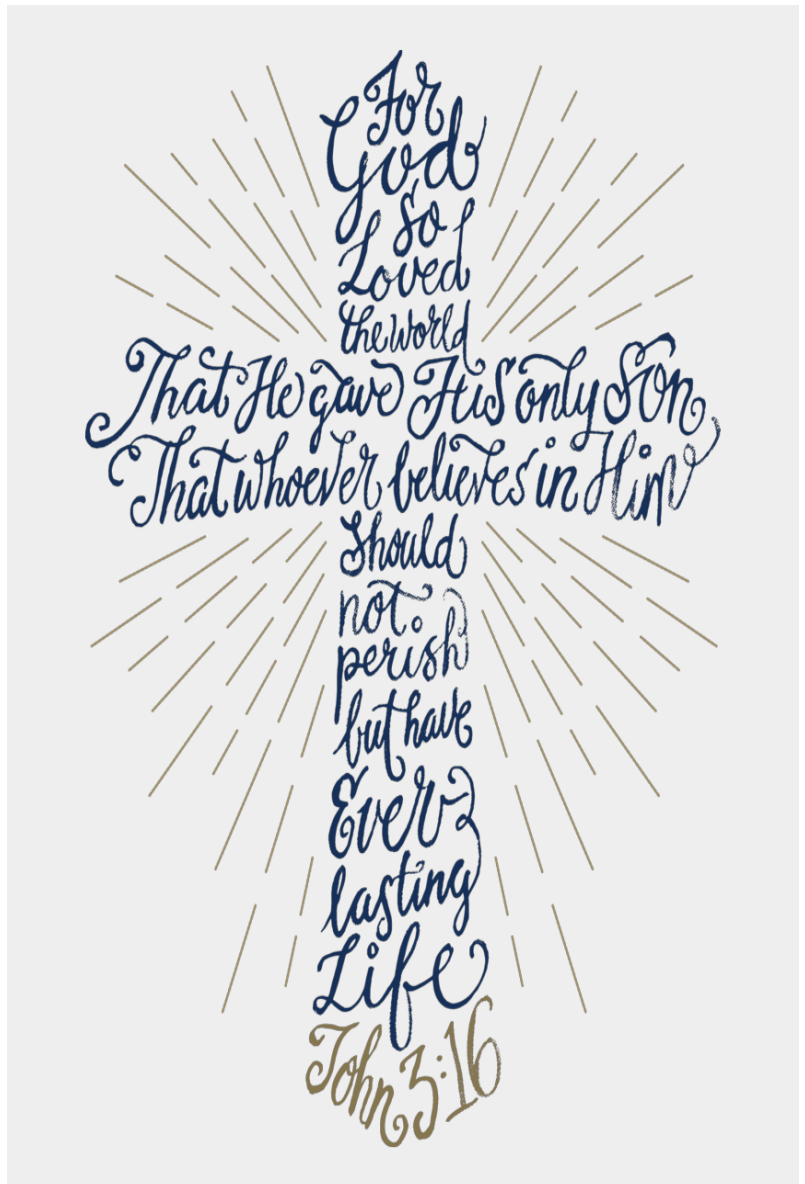 For
God
so
Loved
the world
That He gave His only Son
That whoever believes in Him
Should
not
perish
but have
Ever
lasting
Life
John 3:16